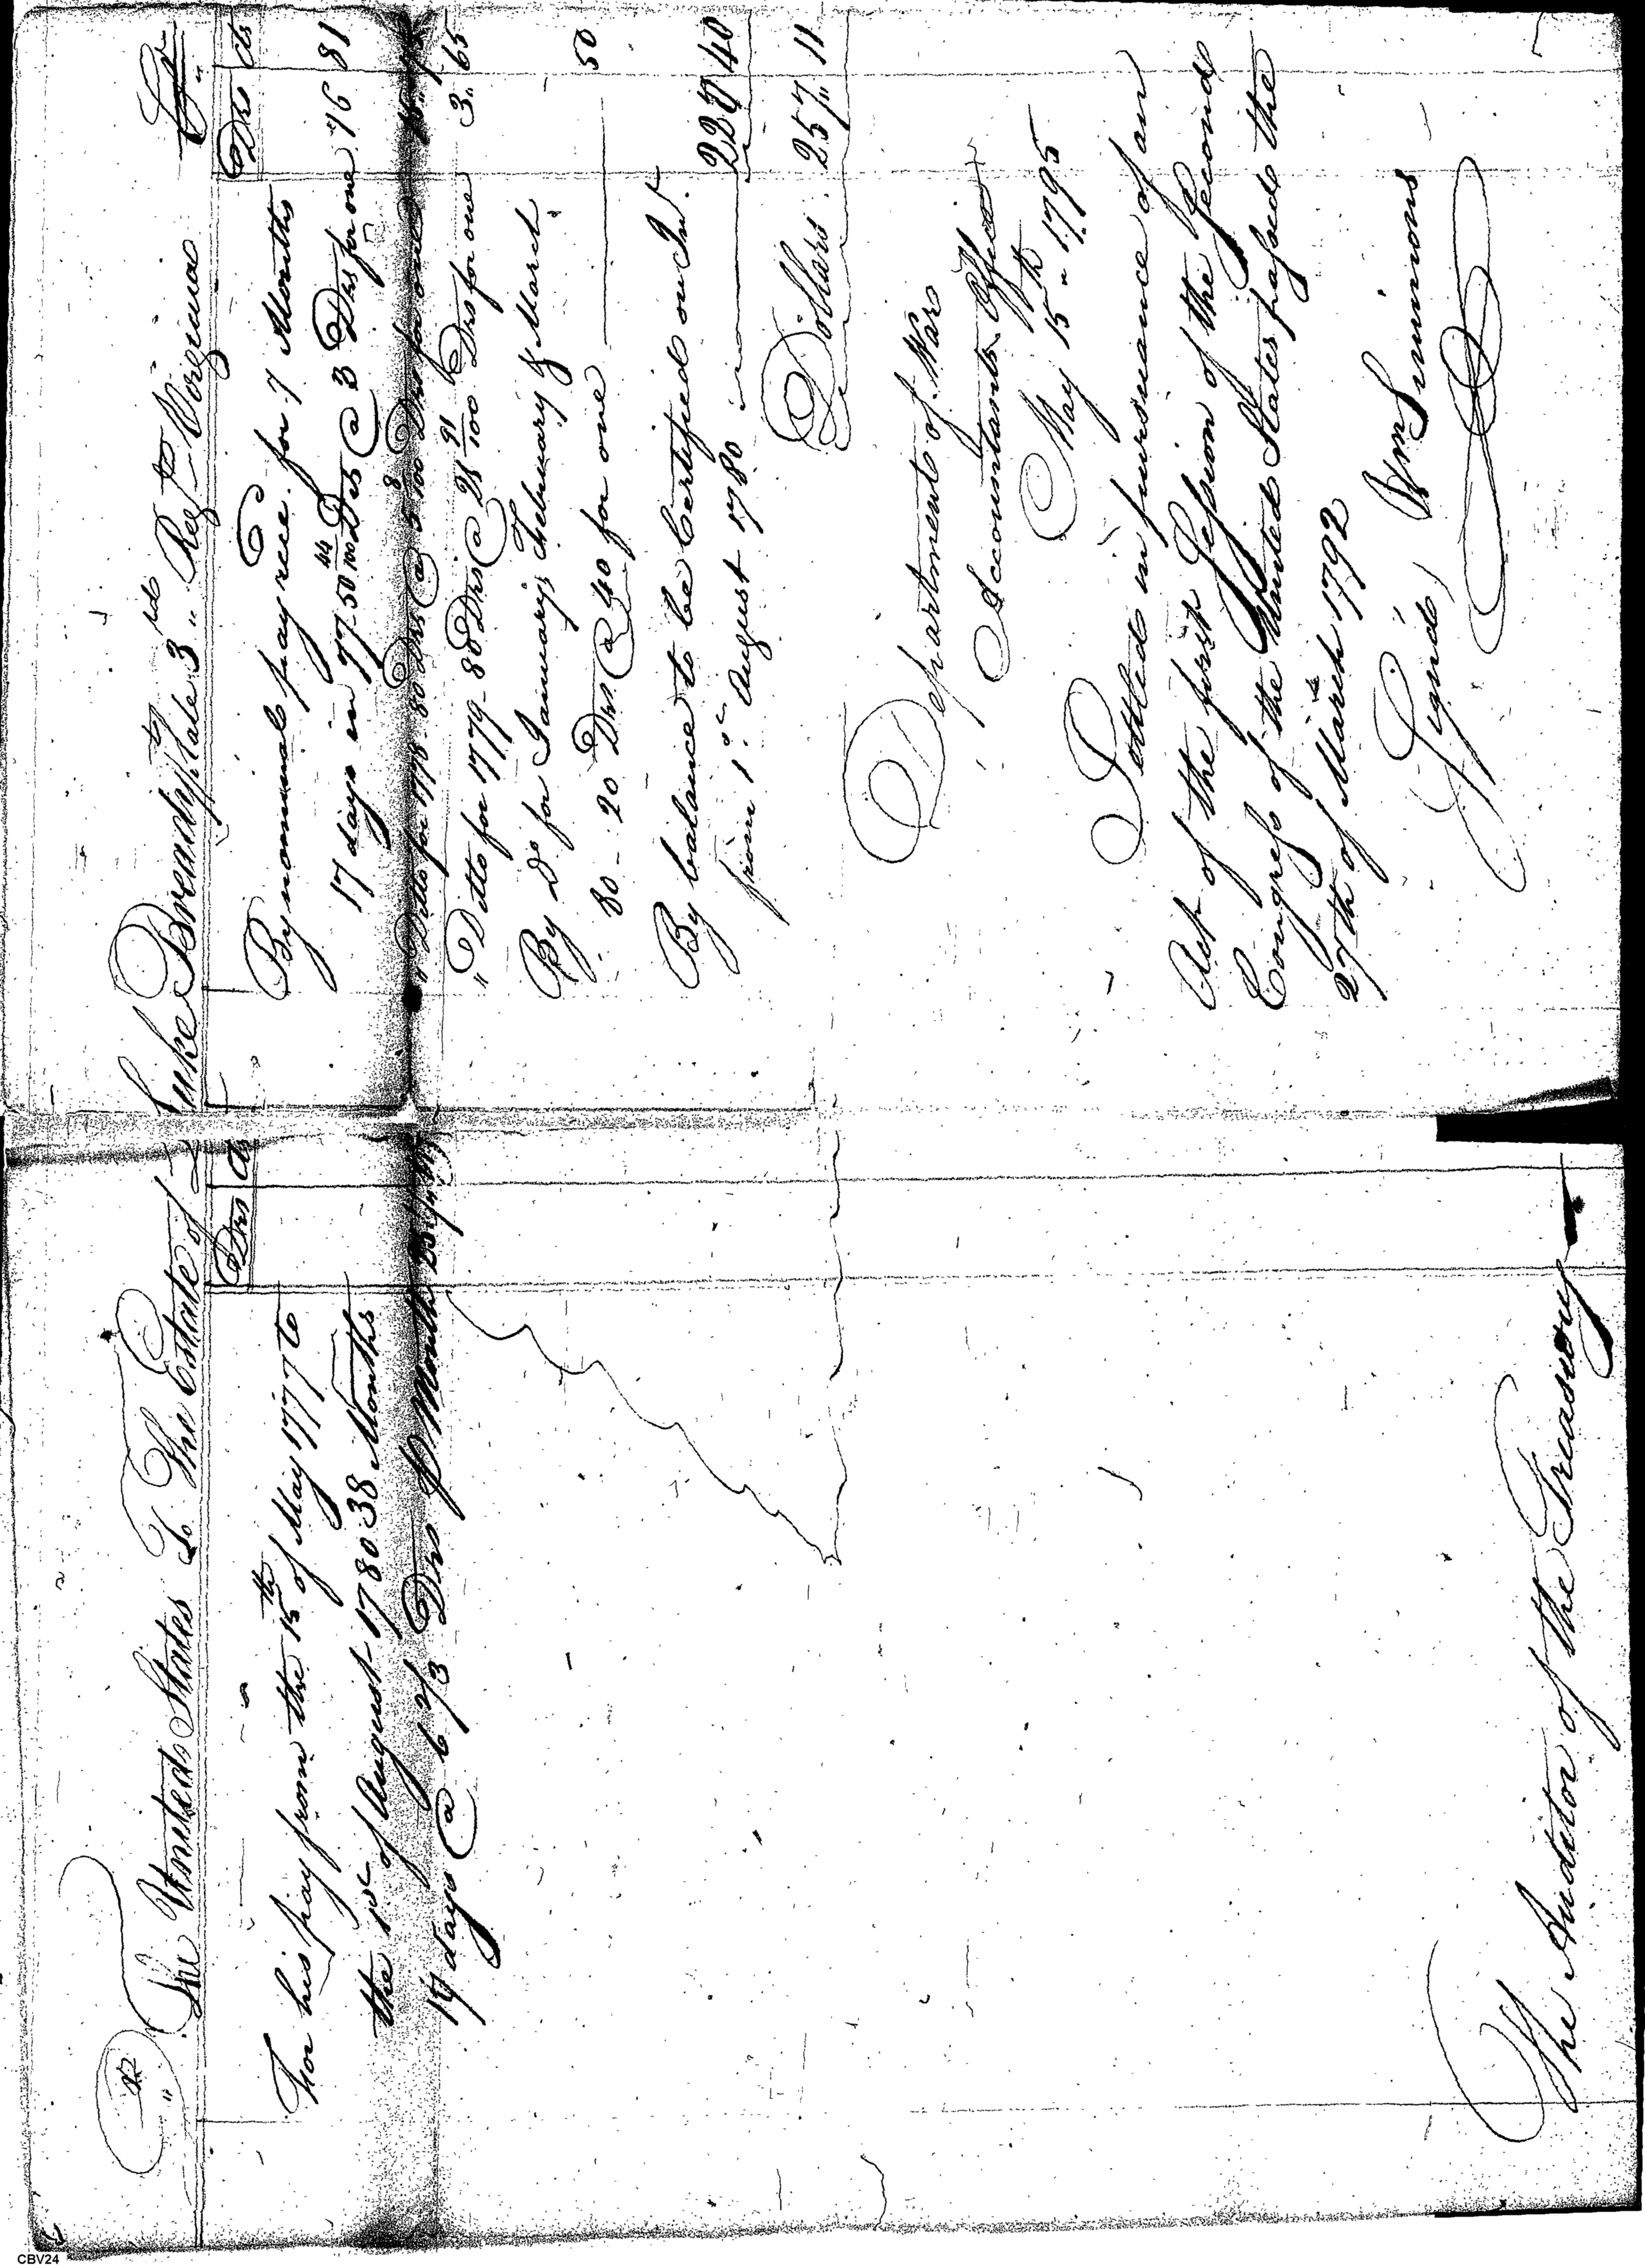 Dr The United States To The Estate of Luke Brently late 3rd Regt Virginia Cr
Drs Cts
For his pay from the 15th of May 1777 to
the 1st of August 1780 38 Months
17 days @ 6 2/3 Drs P Month 257 11
The Auditor of the Treasury
Drs Cts
By nominal pay rece.d for 7 Months
17 days in 77 50 44/100 Drs @ 3 Drs for one 16 81
" Ditto for 1778 80 Drs @ 5 8/100 Drs for one 15
" Ditto for 1779 80 Drs @ 21 91/100 Drs for one 3 65
By Do for January, February & March
80 - 20 Drs @ 40 for one 50
By balance to be Certified on Int.
from 1st August 1780 220 40
Dollars 257 11
Department of War
Accountants Office
May 15th 1795
Settled in pursuance of an
Act of the first Session of the Second
Congress of the United States passed the
27th of March 1792
Signed, Wm Simmons
CBV24